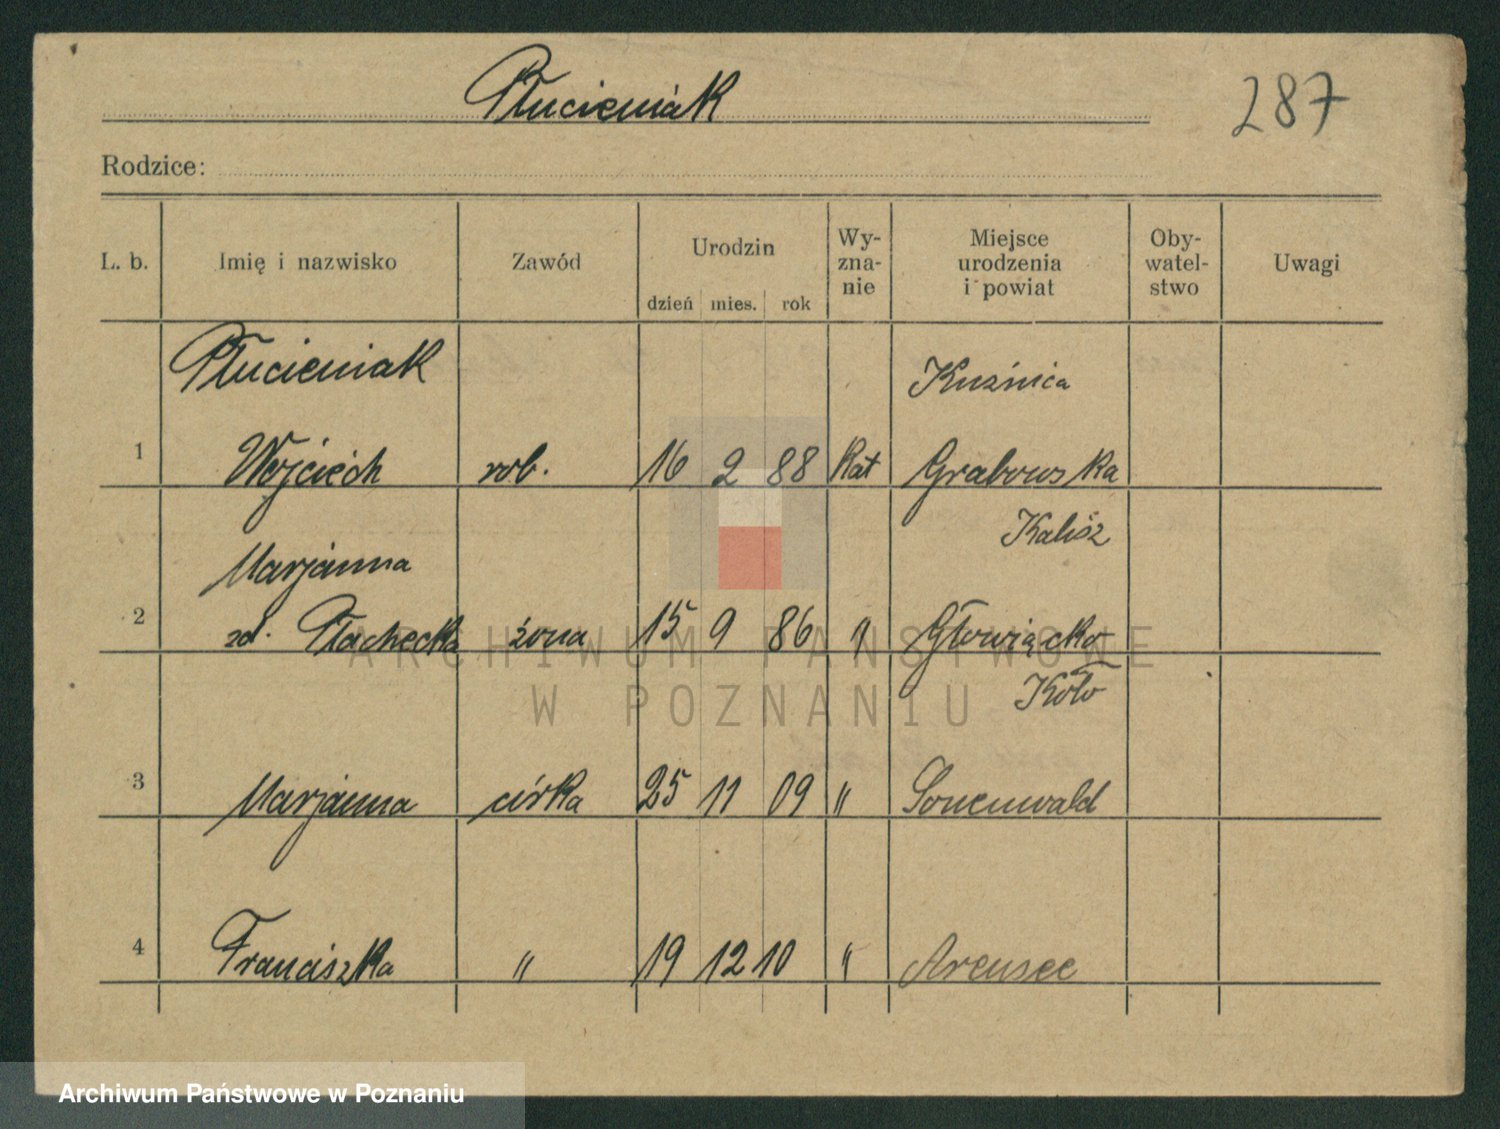 Płucieniak
287
Rodzice:
L. b. Imię i nazwisko Zawód Urodzin dzień mies. rok Wy-zna-nie Miejsce urodzenia i powiat Oby-watel-stwo Uwagi
Płucieniak Kuźnica
1 Wojciech rob. 16 2 88 Kat Grabowska
Kalisz
Marjanna
2 zd. Płachecka żona 15 9 86 " Głowiącko
Koło
3 Marjanna córka 25 11 09 " Sonenwald
4 Franciszka " 19 12 10 " Arensee
ARCHIWUM PAŃSTWOWE
W POZNANIU
Archiwum Państwowe w Poznaniu